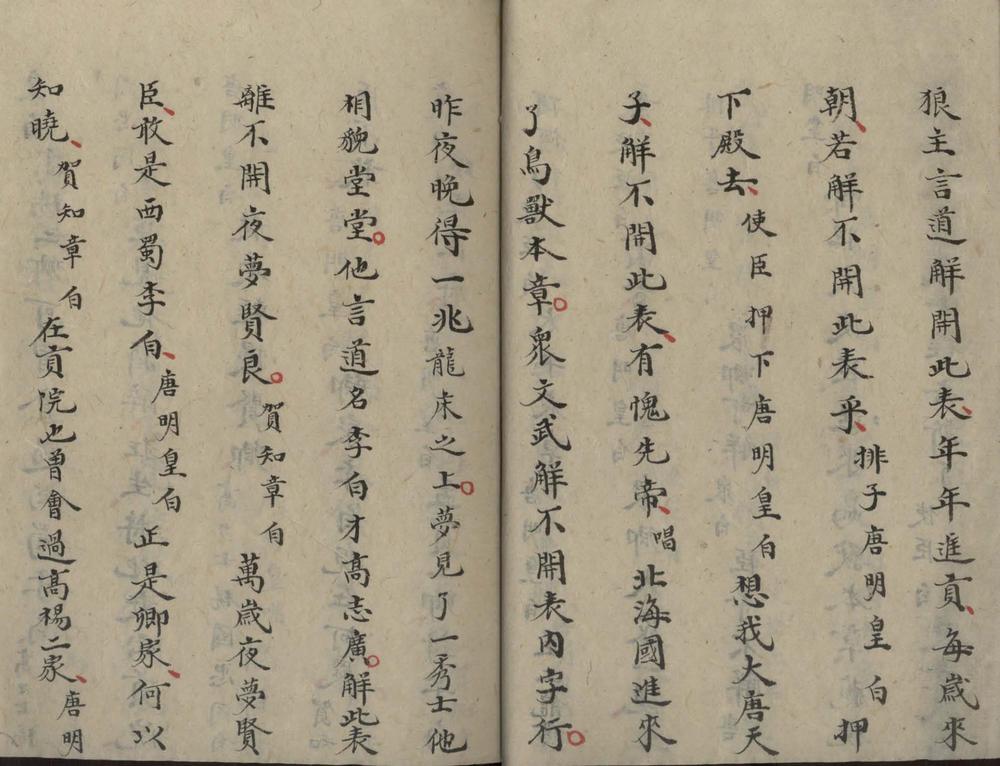 狼主言道解開此表、年年進貢、每歲來
朝、若解不開此表乎、排子唐明皇白押
下殿去、使臣押下唐明皇白想我大唐天
子、解不開此表、有愧先帝、唱北海國進來
了鳥獸本章○眾文武解不開表內字行○
昨夜晚得一兆龍床之上○夢見了一秀士他
相貌堂堂○他言道名李白才高志廣○解此表
離不開夜夢賢良○賀知章白萬歲夜夢賢
臣、敢是西蜀李白、唐明皇白正是卿家、何以
知曉、賀知章白在貢院也曾會過高楊二家、唐明